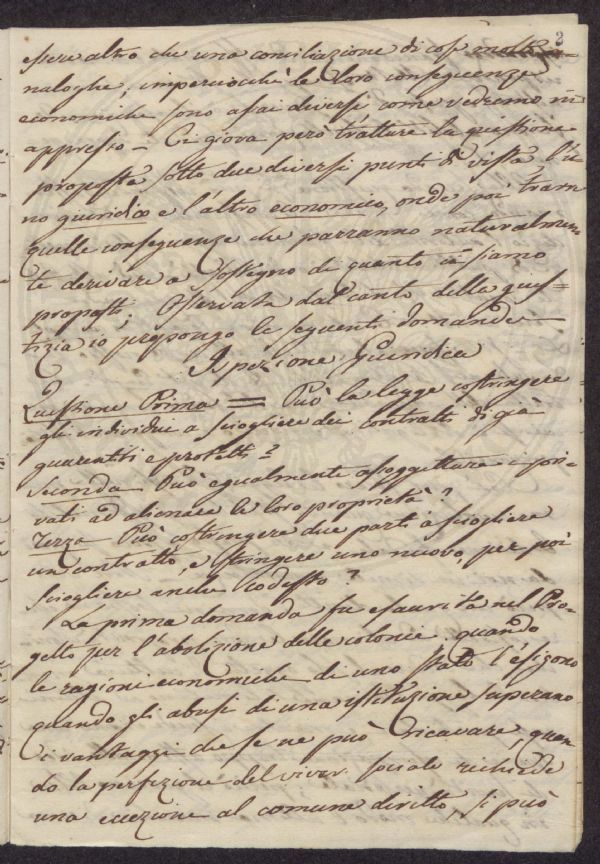 2
essere altro che una conciliazione di cose molto a=
naloghe, imperciocchè le loro conseguenze
economiche sono assai diversi come vedremo in
appresso – Ci giova però trattare la quistione
proposta sotto due diversi punti di vista l'u
no guiridico e l'altro economico, onde poi trarn
quelle conseguenze che parranno naturalmen
te derivare a sostegno di quanto ci siamo
proposti; Osservata dal canto della gius=
tizia io propongo le seguenti domande
Ispezione Guiridica
Quistione Prima = Può la legge costringere
gli individui a sciogliere dei contratti di già
guarentiti e protetti?
Seconda Può egualmente assoggettare i pri=
vati ad alienare le loro proprietà?
Terza Può costringere due parti a sciogliere
un contratto, e stringere uno nuovo, per poi
sciogliere anche codesto?
La prima domanda fu esaurita nel Pro=
getto per l'abolizione delle colonie. quando
le ragioni economiche di uno stato l'esigono
quando gli abusi di una istituzione superano
i vantaggi che se ne può ricavare, quan
do la perfizione del viver sociale richiede
una eccezione al comune diritto, si può